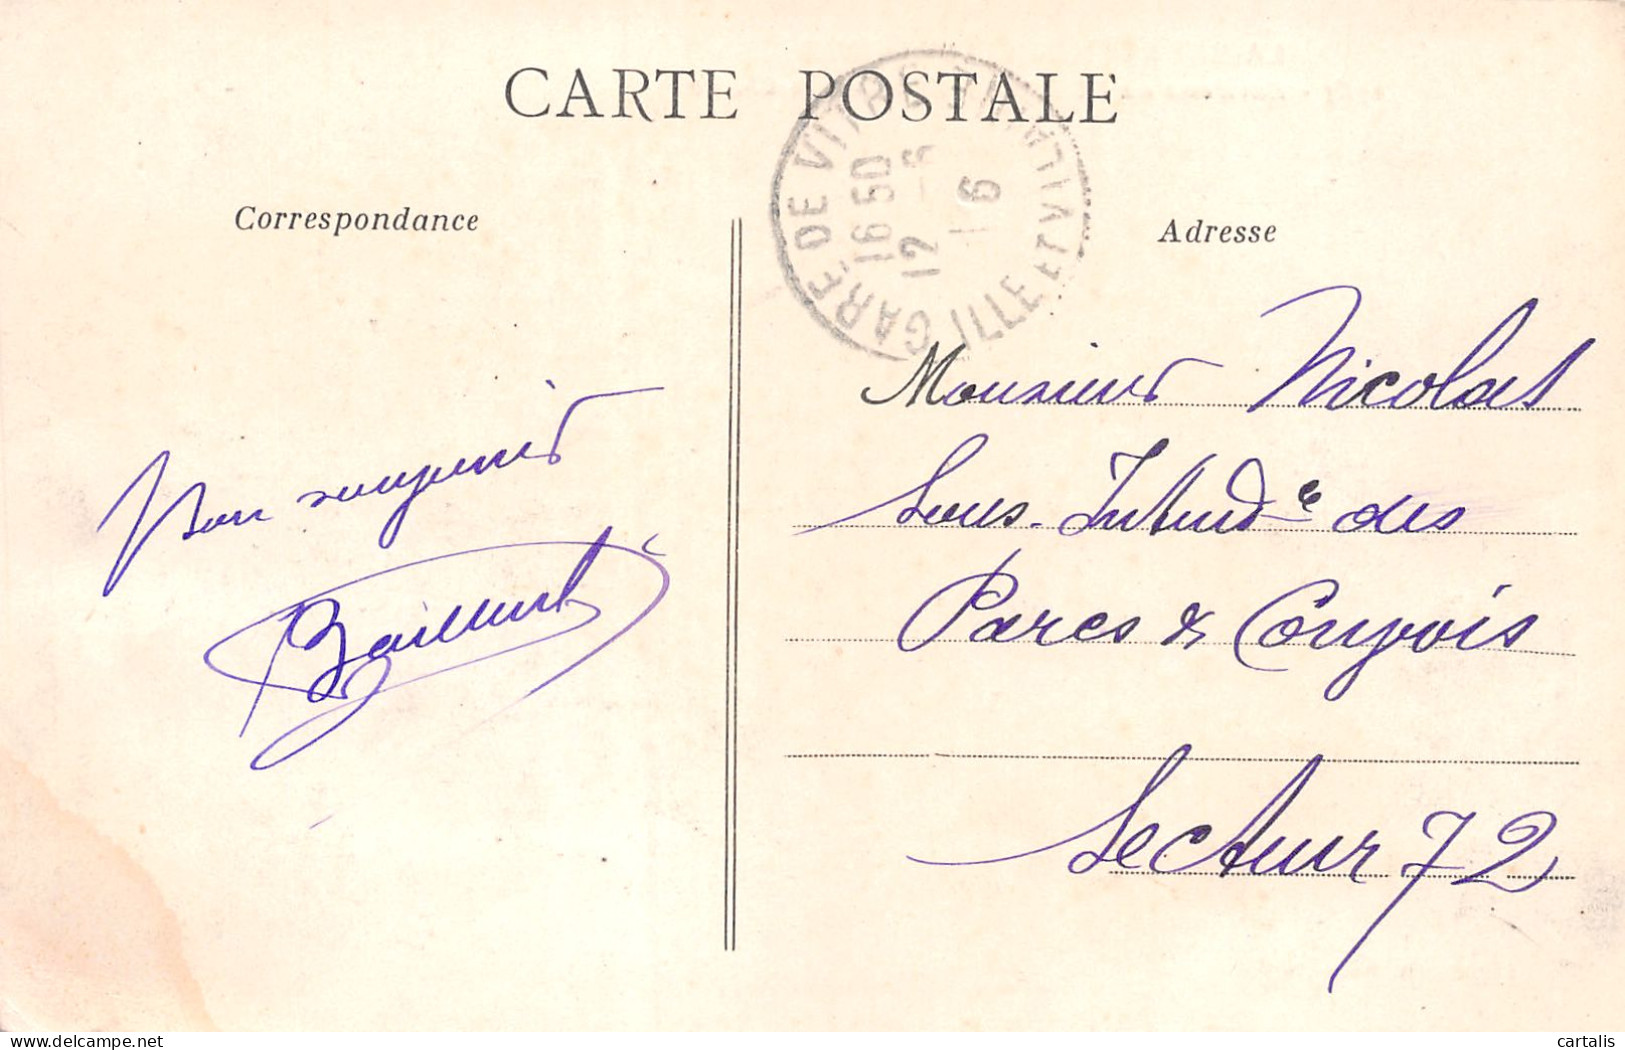 CARTE POSTALE
Correspondance
Adresse
GARE DE VITRÉ
ILLE ET VILAINE
16 50
12 - 6
16
Monsieur Nicolas
Sous-Intendce des
Parcs & Convois
Secteur 72
Bon souvenir
cartalis